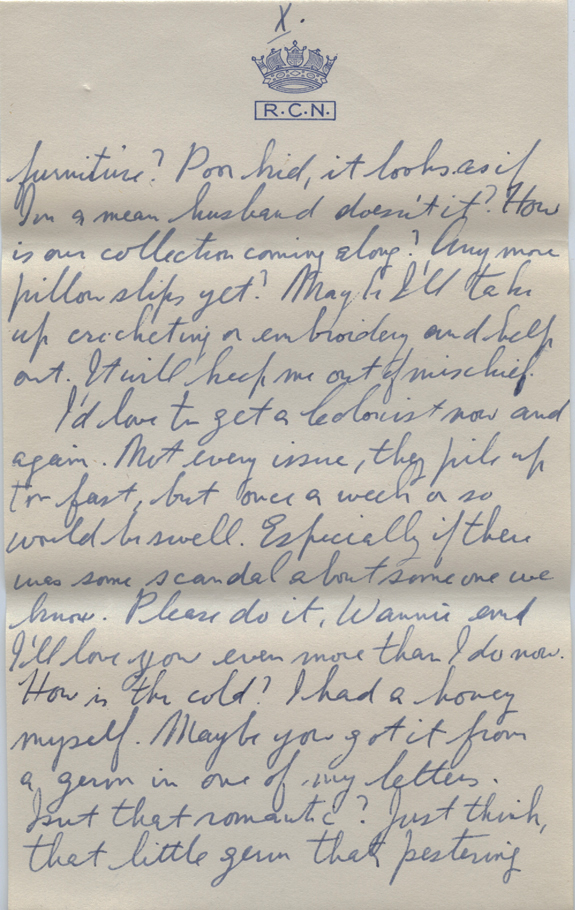 X.
R.C.N.
furniture? Poor kid, it looks as if
I'm a mean husband doesn't it? How
is our collection coming along? Any more
pillow slips yet? Maybe I'll take
up crocheting or embroidery and help
out. It will keep me out of mischief.
I'd love to get a Colonist now and
again. Not every issue, they pile up
too fast, but once a week or so
would be swell. Especially if there
was some scandal about someone we
know. Please do it, Wannie and
I'll love you even more than I do now.
How is the cold? I had a honey
myself. Maybe you got it from
a germ in one of my letters.
Isnt that romantic? Just think,
that little germ that pestering